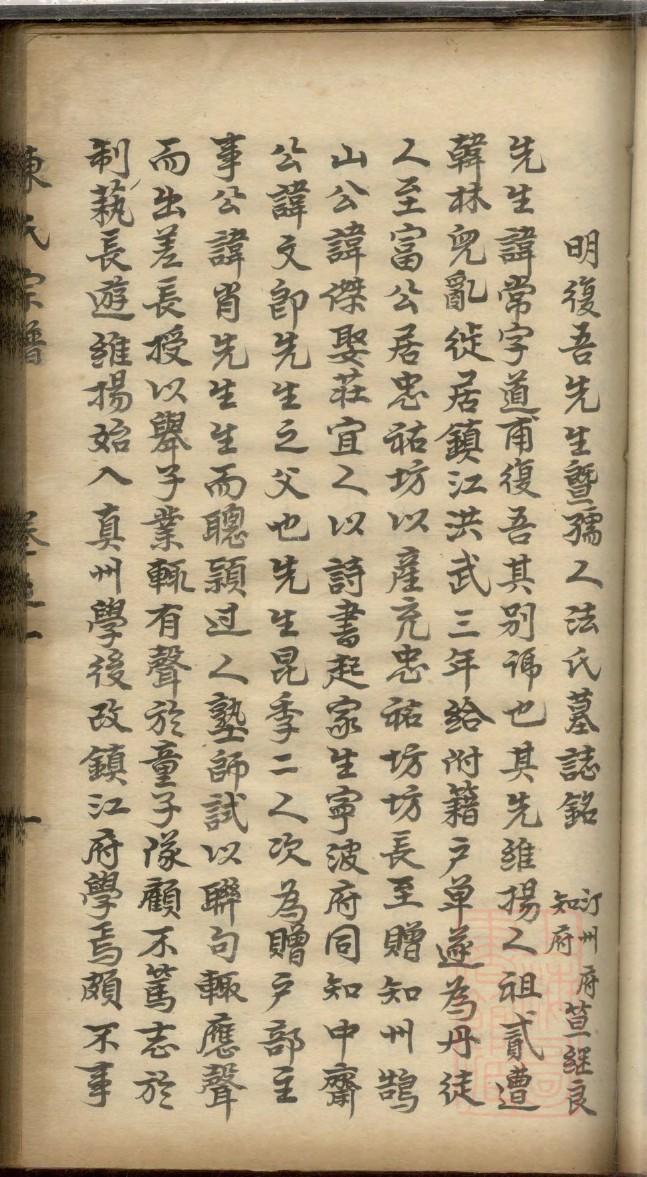 明復吾先生暨孺人法氏墓誌銘 汀州府知府笪継良
先生諱常字道甫復吾其別号也其先維揚人祖貳遭
韓林兒亂徙居鎮江洪武三年給附籍户单遂為丹徒
人至富公居忠祐坊以產充忠祐坊坊長至贈知州鵠
山公諱傑娶莊宜人以詩書起家生寧波府同知中齋
公諱文郎先生之父也先生昆季二人次為贈户部主
事公諱肖先生生而聰頴过人塾師試以聯句輒應聲
而出差長授以舉子業輒有聲於童子隊顧不篤志於
制藝長遊維揚始入真州學後改鎮江府學焉頗不事
陳氏宗譜